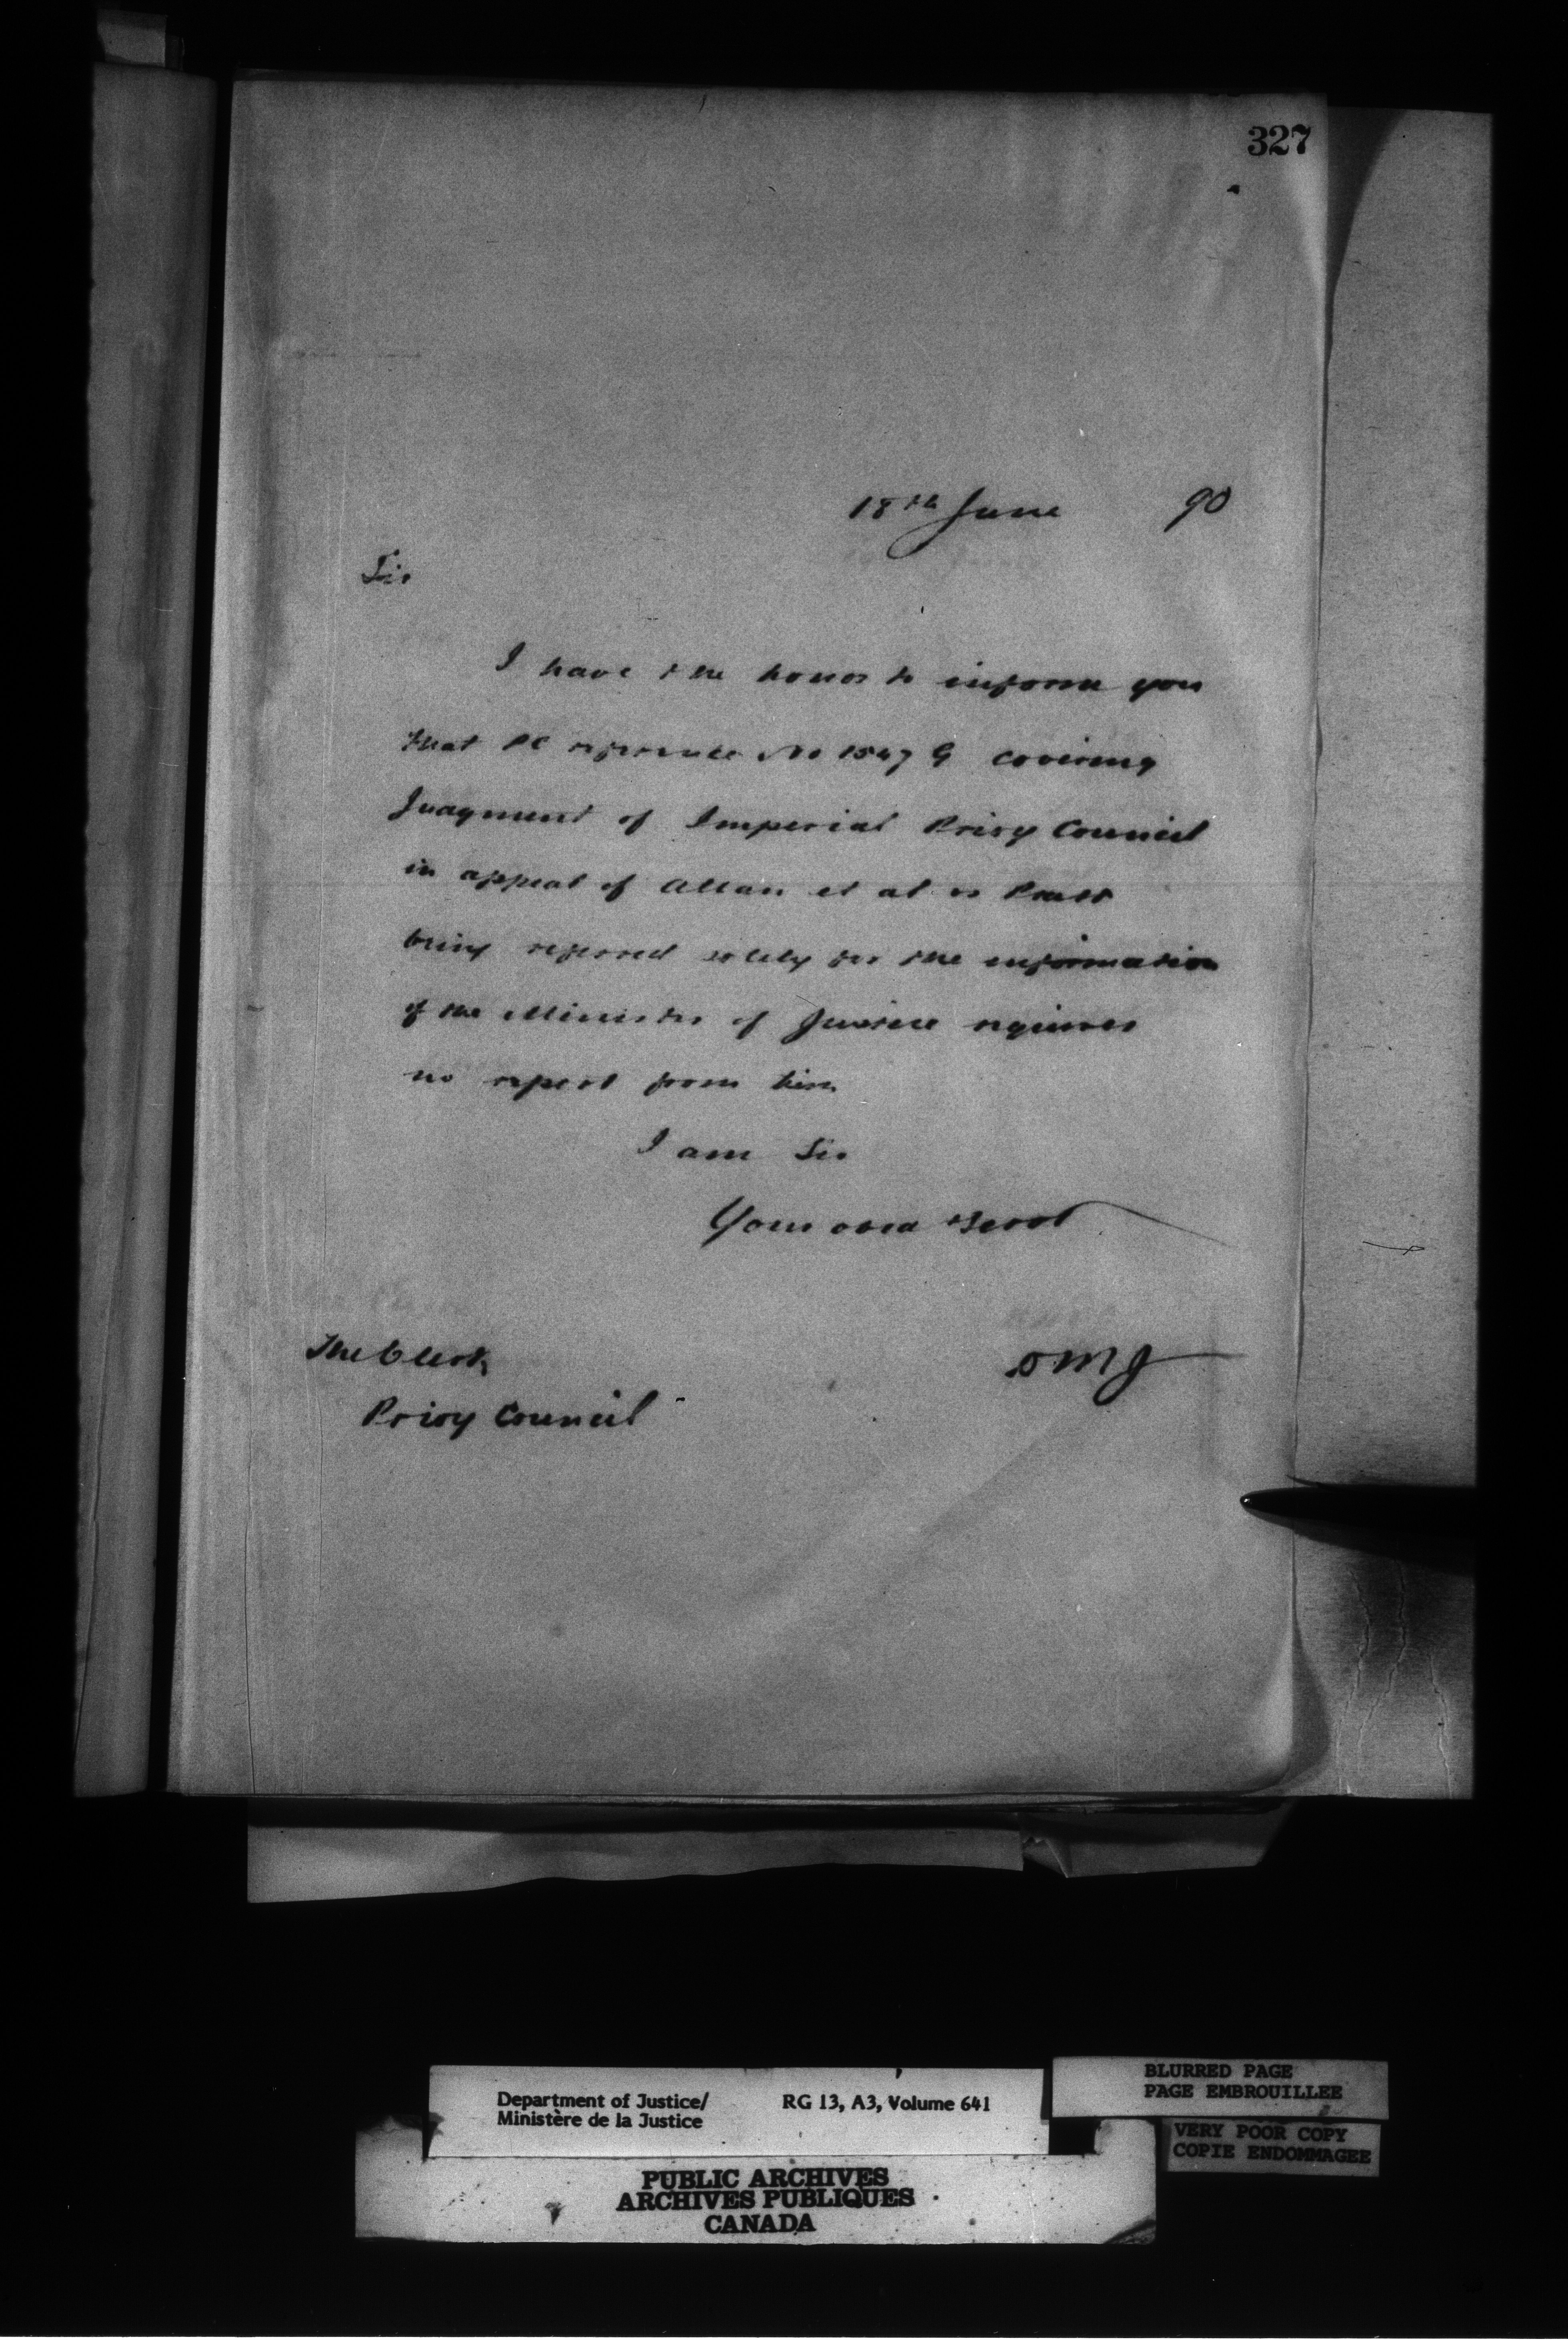 327
18th June 90
Sir
I have the honor to inform you
that PC reference No 1547 G covering
Judgment of Imperial Privy Council
in appeal of Allan et al vs Pratt
being referred solely for the information
of the Minister of Justice requires
no report from him
I am Sir
Your obed Servt
The Clerk
Privy Council
DMJ
Department of Justice/
Ministère de la Justice
RG 13, A3, Volume 641
BLURRED PAGE
PAGE EMBROUILLEE
VERY POOR COPY
COPIE ENDOMMAGEE
PUBLIC ARCHIVES
ARCHIVES PUBLIQUES
CANADA